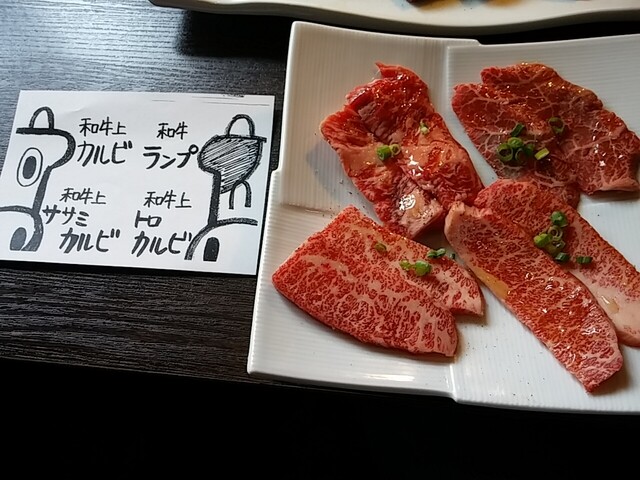 和牛上 和牛
カルビ ランプ
和牛上 和牛上
ササミ トロ
カルビ カルビ